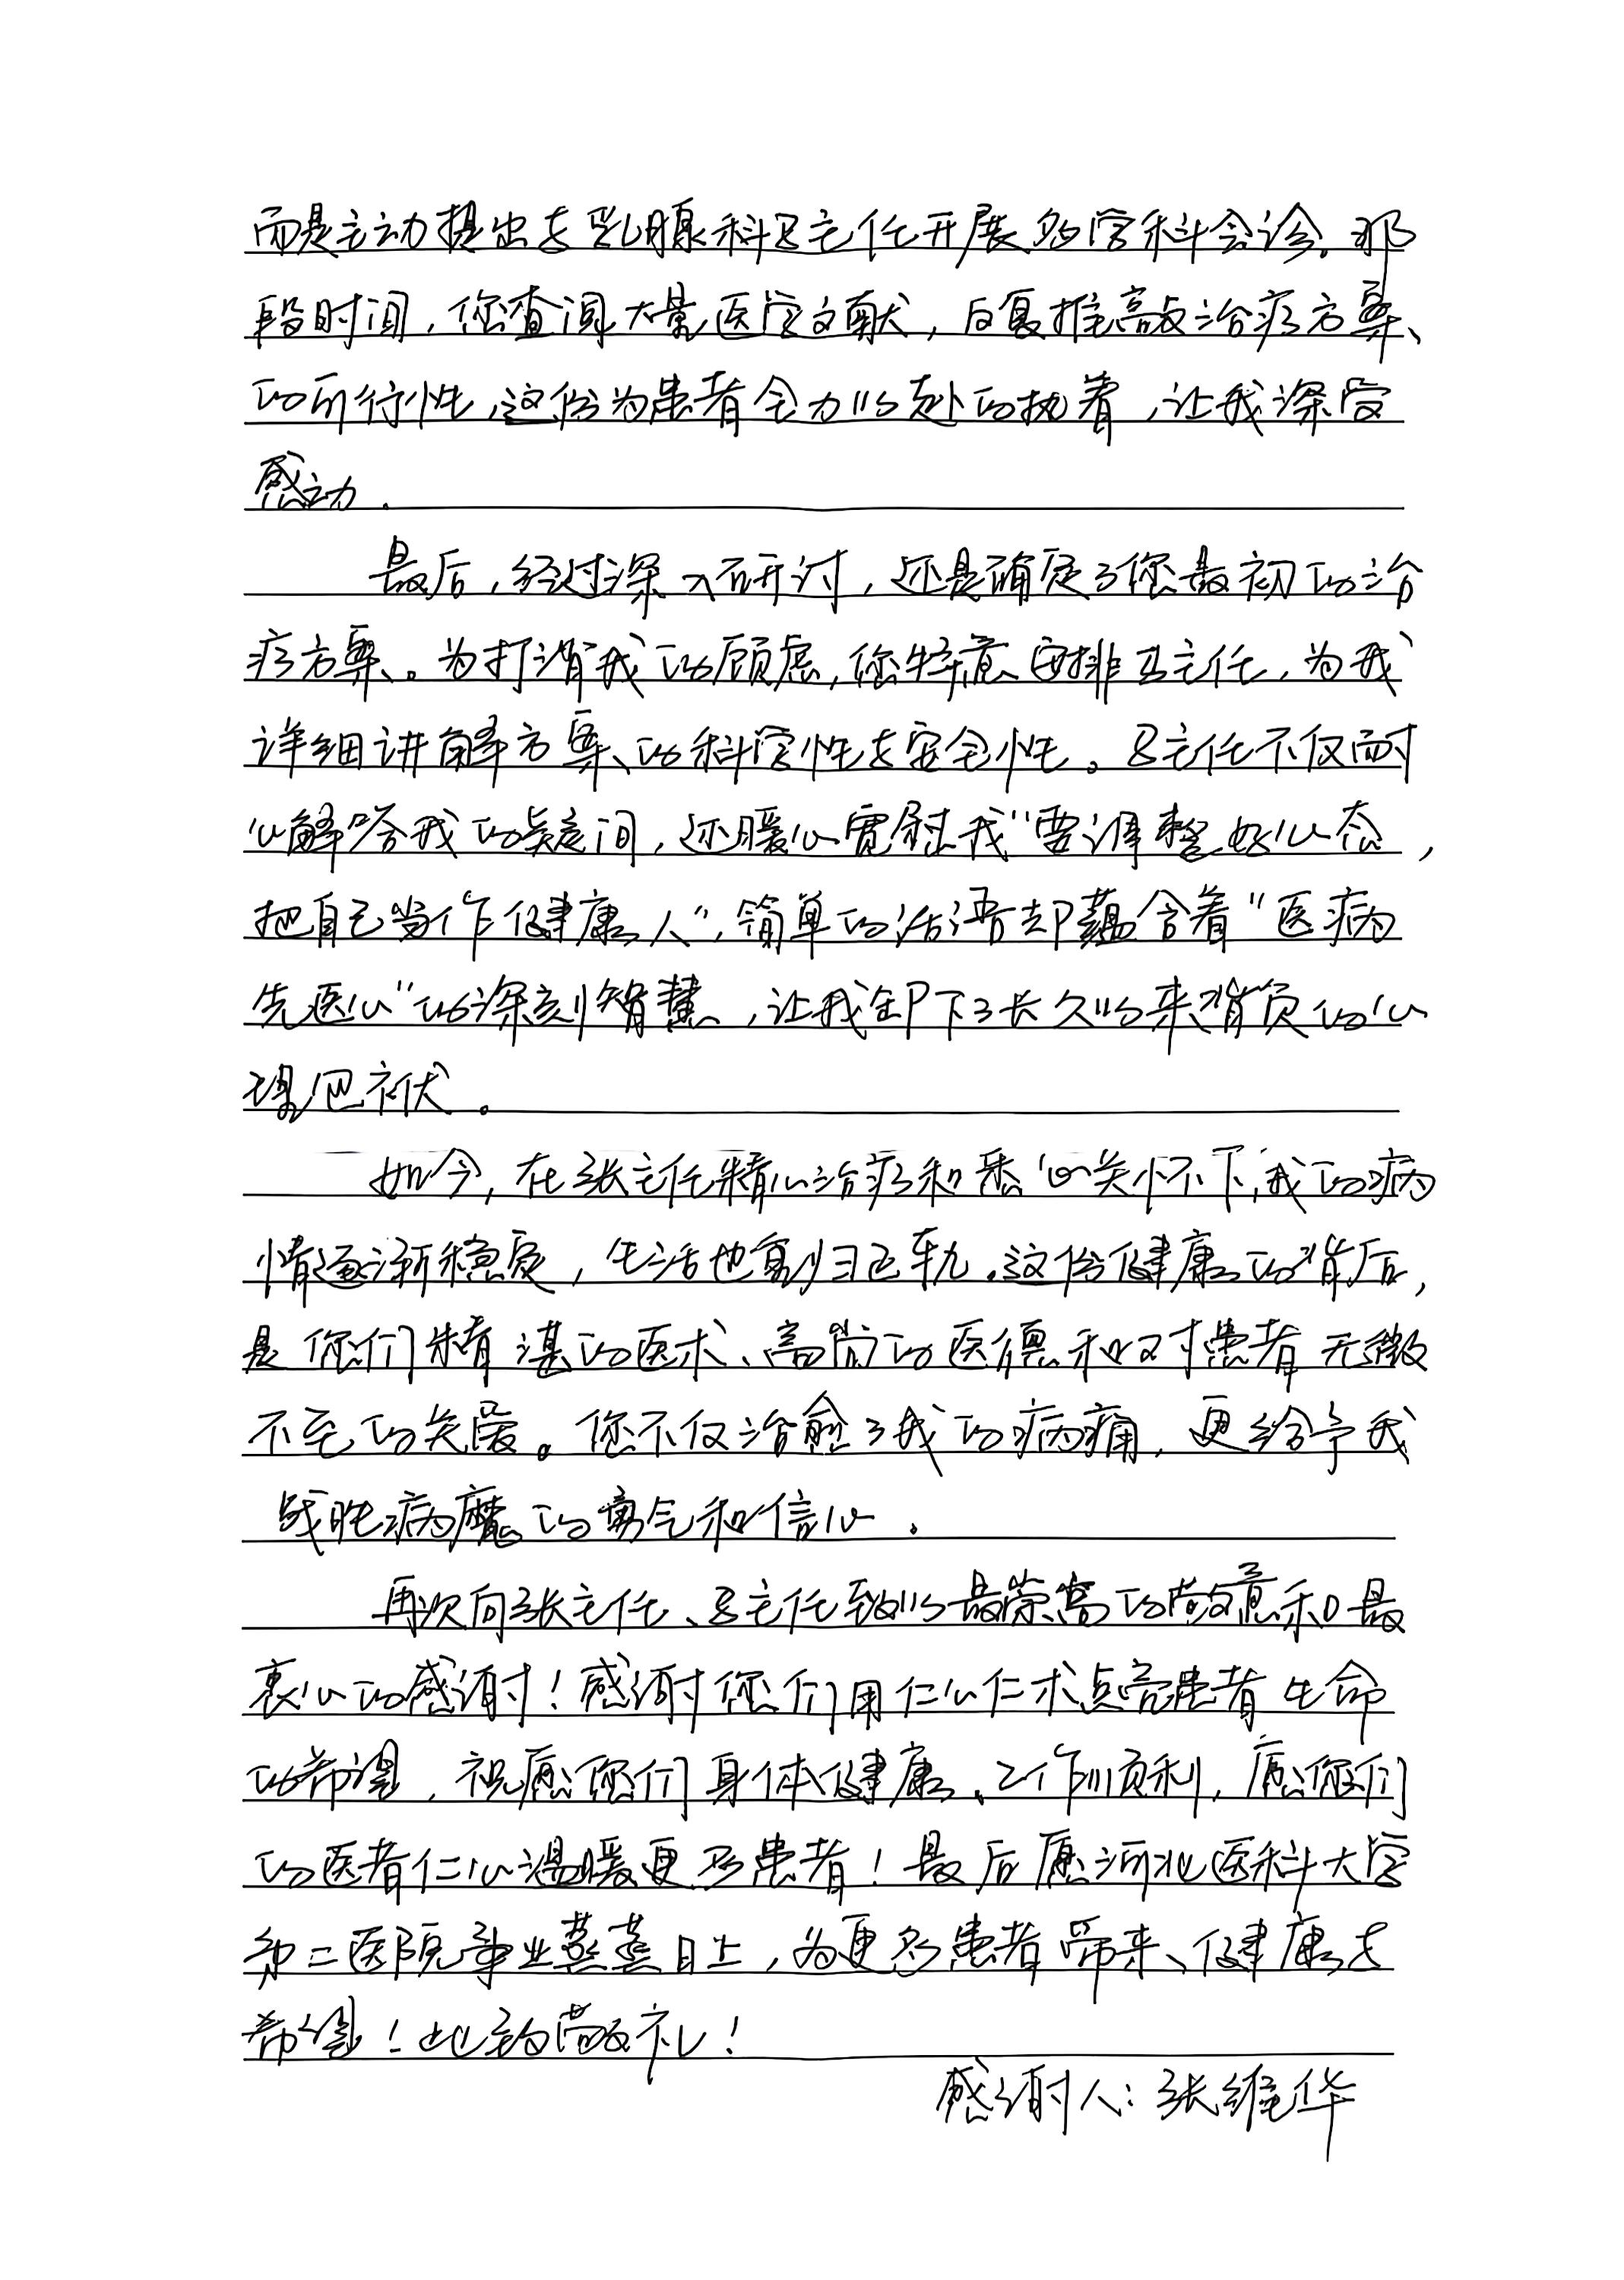 而是主动提出与乳腺科吕主任开展多学科会诊。那
段时间，您查阅大量医学文献，反复推敲治疗方案
的可行性，这份为患者全力以赴的执着，让我深受
感动。
最后，经过深入研讨，还是确定了您最初的治
疗方案。为打消我的顾虑，您特意安排吕主任，为我
详细讲解方案的科学性与安全性。吕主任不仅耐
心解答我的疑问，还暖心宽慰我“要调整好心态，
把自己当作健康人”，简单的话语却蕴含着“医病
先医心”的深刻智慧，让我卸下了长久以来背负的心
理包袱。
如今，在张主任精心治疗和悉心关怀下，我的病
情逐渐稳定，生活也重归正轨。这份健康的背后，
是您们精湛的医术、高尚的医德和对患者无微
不至的关爱。您不仅治愈了我的病痛，更给予我
战胜病魔的勇气和信心。
再次向张主任、吕主任致以最崇高的敬意和最
衷心的感谢！感谢您们用仁心仁术点亮患者生命
的希望，祝愿您们身体健康、工作顺利，愿您们
的医者仁心温暖更多患者！最后愿河北医科大学
第二医院事业蒸蒸日上，为更多患者带来健康与
希望！此致敬礼！
感谢人：张维华